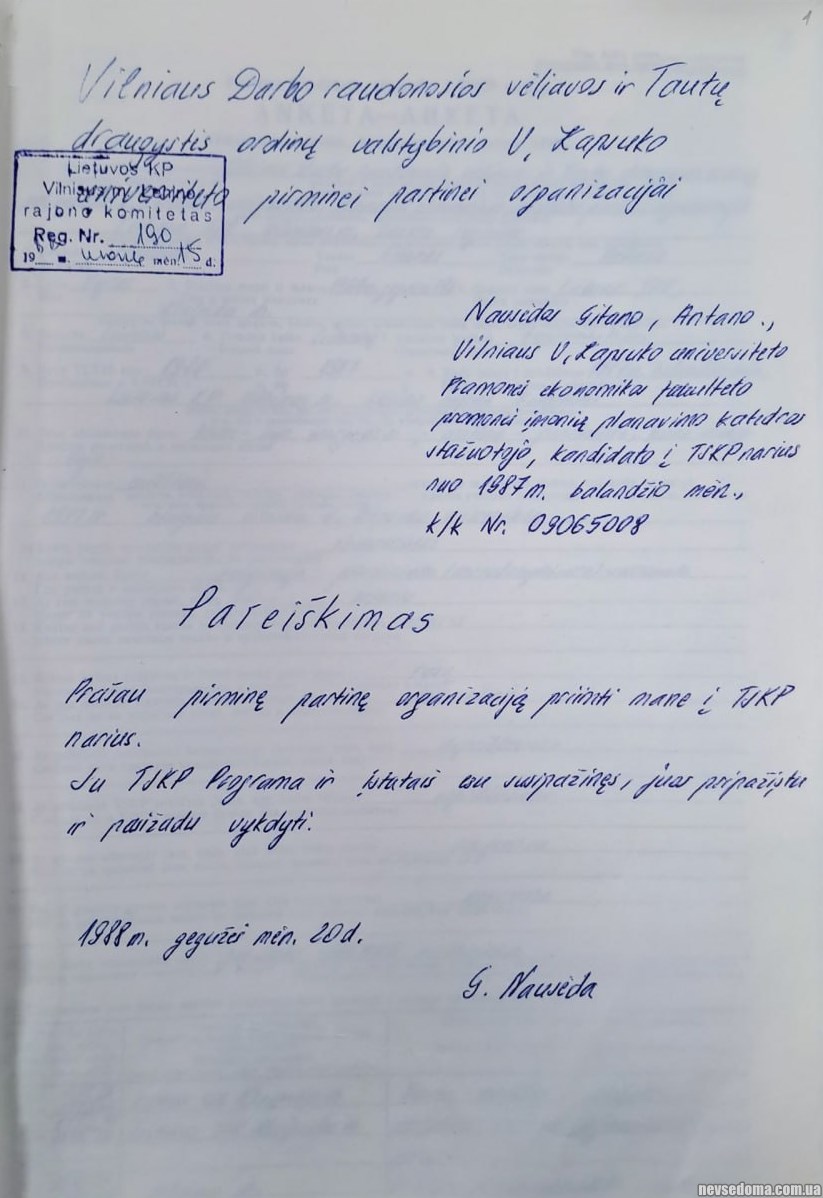 1
Vilniaus Darbo raudonosios vėliavos ir Tautų
draugystės ordinų valstybinio V. Kapsuko
universiteto pirminei partinei organizacijai
Lietuvos KP
Vilniaus m.
rajono komitetas
Reg. Nr. 190
19 m. mėn. 15 d.
Nausėdos Gitano, Antano.,
Vilniaus V. Kapsuko universiteto
Pramonės ekonomikos fakulteto
pramonės įmonių planavimo katedros
stažuotojo, kandidato į TSKP narius
nuo 1987 m. balandžio mėn.,
k/k Nr. 09065008
Pareiškimas
Prašau pirminę partinę organizaciją priimti mane į TSKP
narius.
Su TSKP Programa ir įstatais esu susipažinęs, juos pripažįstu
ir pasižadu vykdyti.
1988 m. gegužės mėn. 20 d.
G. Nausėda
nevsedoma.com.ua